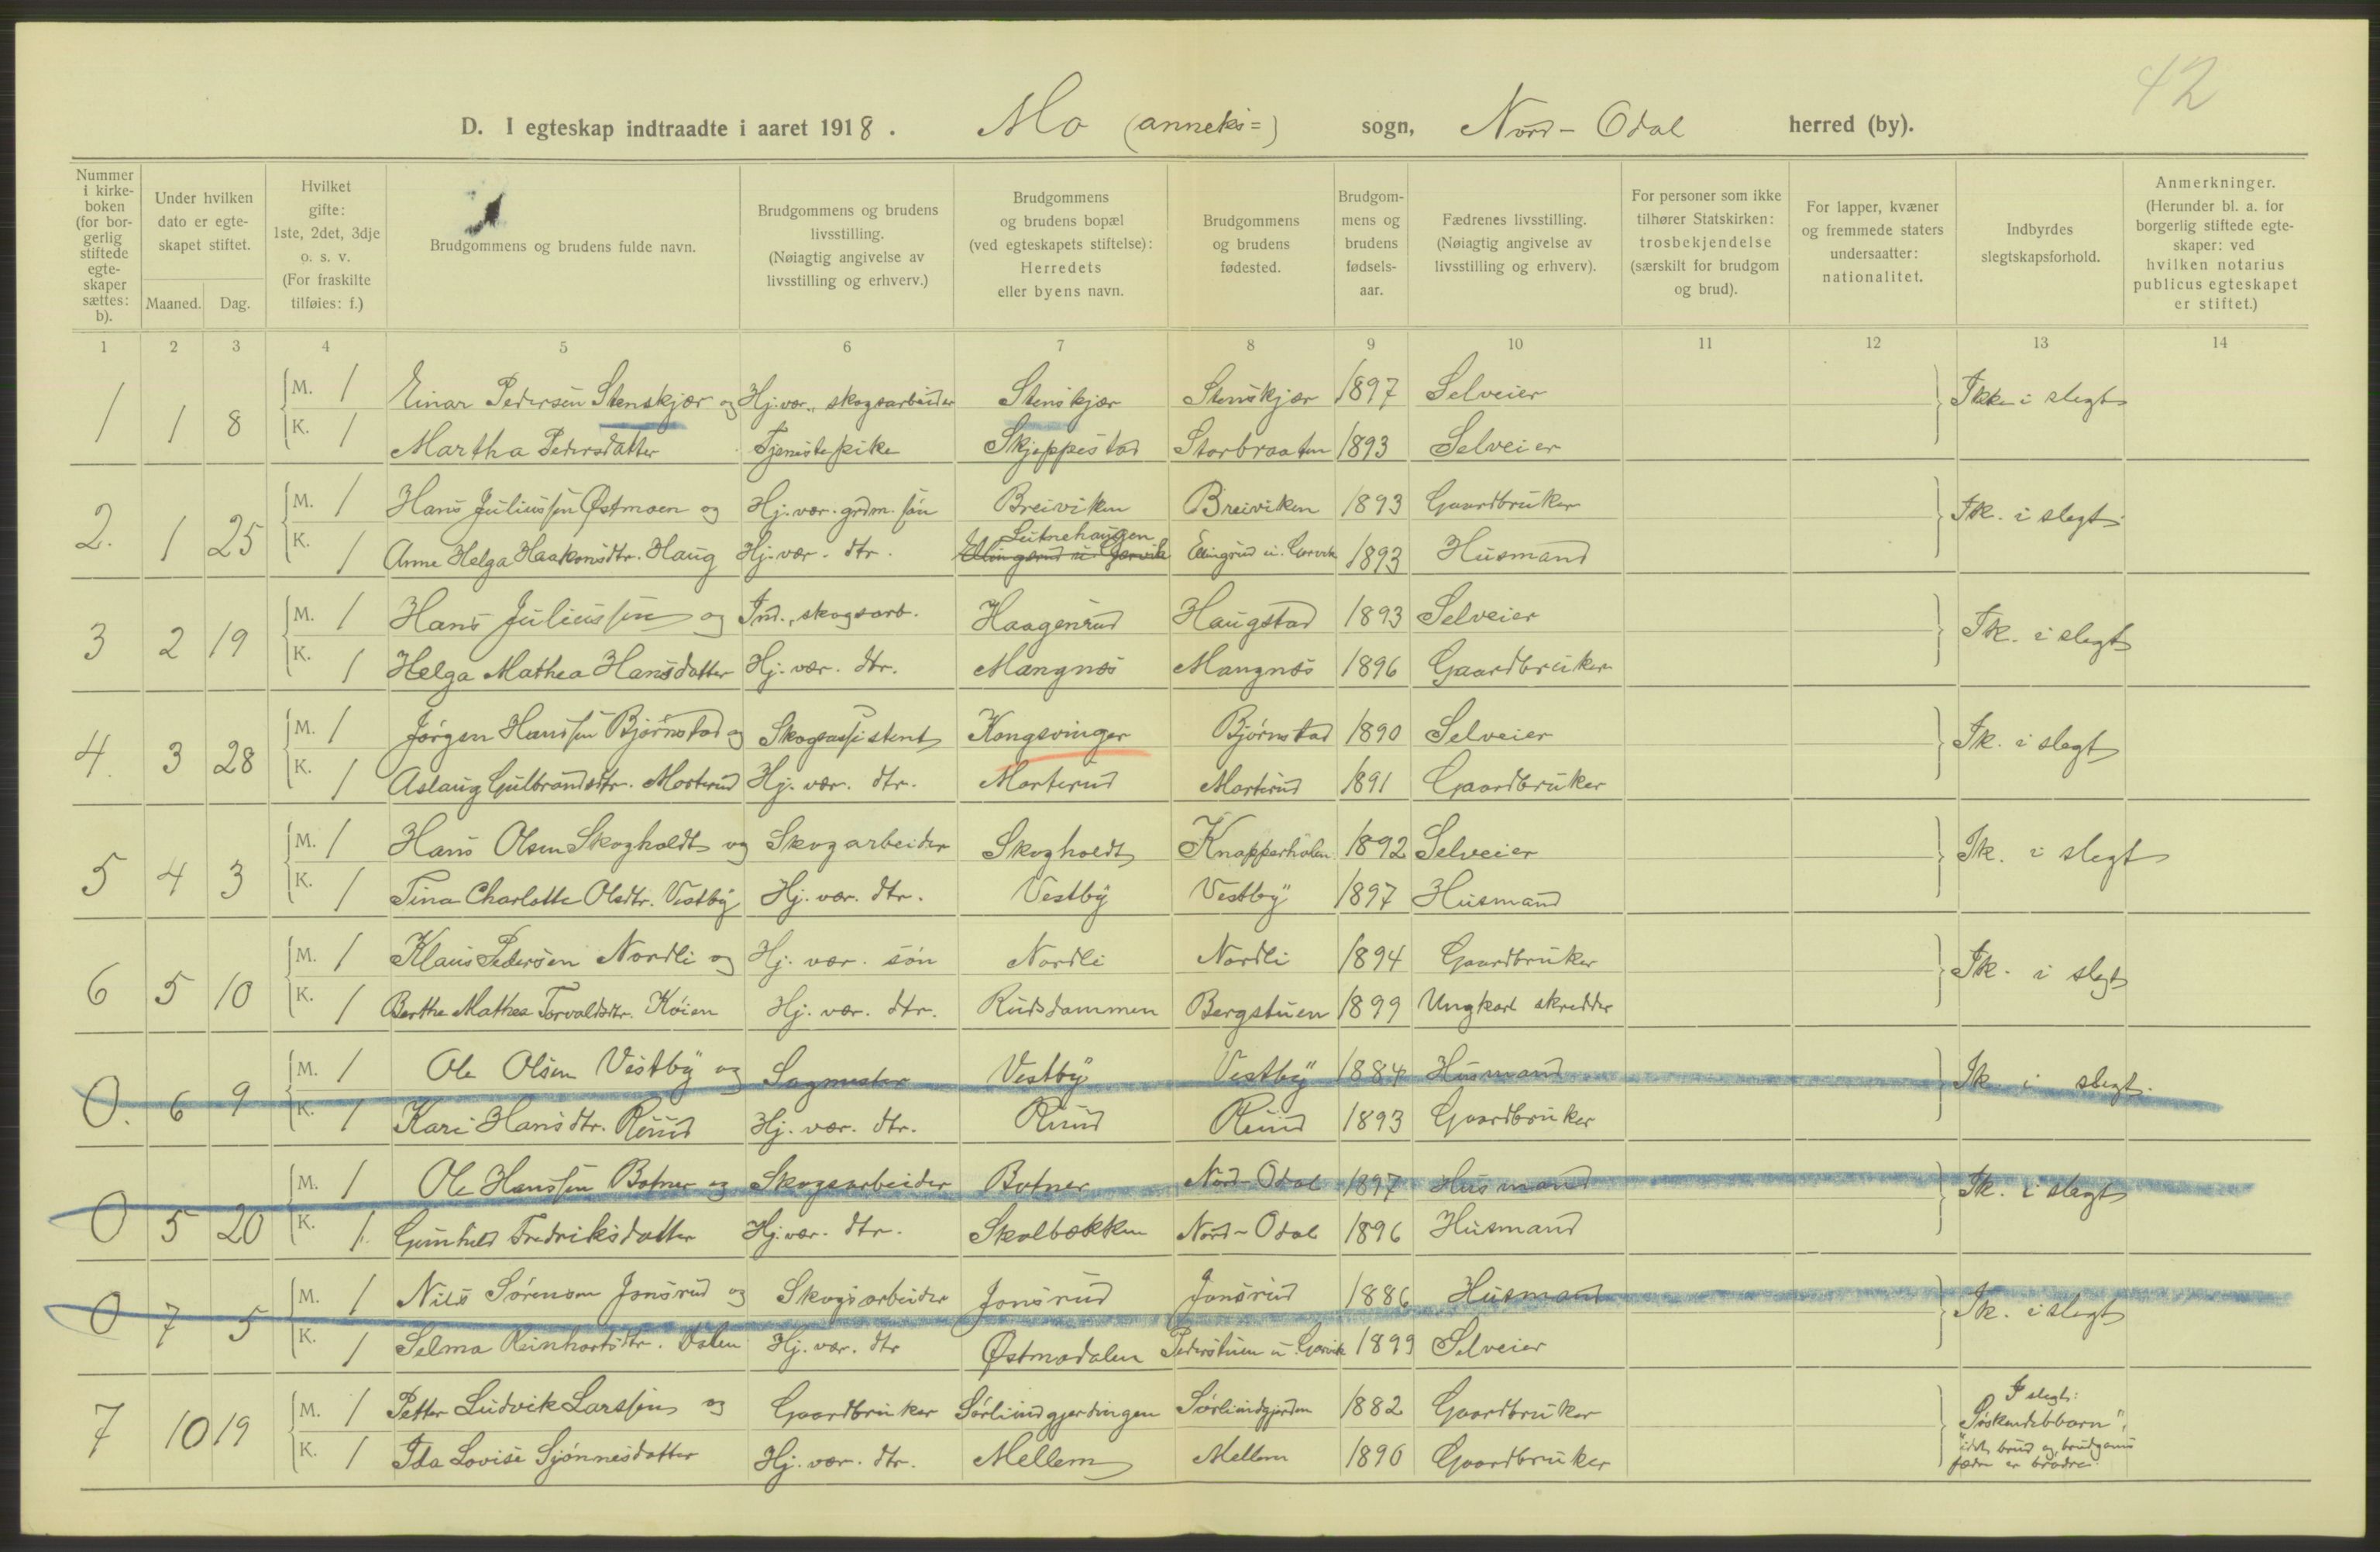 42
D. I egteskap indtraadte i aaret 1918. Mo (anneks=) sogn, Nord-Odal herred (by).
Nummer i kirke-boken (for bor-gerlig stiftede egte-skaper sættes: b).
Under hvilken dato er egte-skapet stiftet.
Maaned. Dag.
Hvilket gifte: 1ste, 2det, 3dje o. s. v. (For fraskilte tilføies: f.)
Brudgommens og brudens fulde navn.
Brudgommens og brudens livsstilling. (Nøiagtig angivelse av livsstilling og erhverv.)
Brudgommens og brudens bopæl (ved egteskapets stiftelse): Herredets eller byens navn.
Brudgommens og brudens fødested.
Brudgom-mens og brudens fødsels-aar.
Fædrenes livsstilling. (Nøiagtig angivelse av livsstilling og erhverv).
For personer som ikke tilhører Statskirken: trosbekjendelse (særskilt for brudgom og brud).
For lapper, kvæner og fremmede staters undersaatter: nationalitet.
Indbyrdes slegtskapsforhold.
Anmerkninger. (Herunder bl. a. for borgerlig stiftede egte-skaper: ved hvilken notarius publicus egteskapet er stiftet.)
1 2 3 4 5 6 7 8 9 10 11 12 13 14
1 1 8 M. 1 Einar Pedersen Stenskjær og Hj. vær., skogsarbeider Stenskjær Stenskjær 1897 Selveier Ikke i slegt
K. 1 Martha Pedersdatter Tjenestepike Skjeppestad Storbraaten 1893 Selveier
2. 1 25 M. 1 Hans Juliussen Østmoen og Hj. vær. grdm. søn Breiviken Breiviken 1893 Gaardbruker Ik. i slegt
K. 1 Anne Helga Haakonsdtr. Haug Hj. vær. dtr. Ellingsrud u. Garvik 1893 Husmand
3 2 19 M. 1 Hans Juliussen og Ind., skogsarb. Haagenrud Haugstad 1893 Selveier Ik. i slegt
K. 1 Helga Mathea Hansdatter Hj. vær. dtr. Mangnæs Mangnæs 1896 Gaardbruker
4. 3 28 M. 1 Jørgen Hanssen Bjørnstad og Skogsassistent Kongsvinger Bjørnstad 1890 Selveier Ik. i slegt
K. 1 Aslaug Gulbrandsdtr. Morterud Hj. vær. dtr. Morterud Morterud 1891 Gaardbruker
5 4 3 M. 1 Hans Olsen Skogholdt og Skogarbeider Skogholdt Knapperholen 1892 Selveier Ik. i slegt
K. 1 Tina Charlotte Olsdtr. Vestby Hj. vær. dtr. Vestby Vestby 1897 Husmand
6 5 10 M. 1 Klaus Pedersen Nordli og Hj. vær. søn Nordli Nordli 1894 Gaardbruker Ik. i slegt
K. 1 Berthe Mathea Torvaldsdtr. Køien Hj. vær. dtr. Rudsdammen Bergstuen 1899 Ungkarl skredder
0. 6 9 M. 1 Ole Olsen Vestby og Sagmester Vestby Vestby 1884 Husmand Ik. i slegt.
K. 1 Kari Hansdtr. Ruud Hj. vær. dtr. Ruud Ruud 1893 Gaardbruker
0 5 20 M. 1 Ole Hanssen Botner og Skogsarbeider Botner Nord-Odal 1897 Husmand Ik. i slegt
K. 1 Gunhild Fredriksdatter Hj. vær. dtr. Skolbækken Nord-Odal 1896 Husmand
0 7 5 M. 1 Nils Sørensen Jonsrud og Skogsarbeider Jonsrud Jonsrud 1886 Husmand Ik. i slegt
K. 1 Selma Reinhartsdtr. Dalen Hj. vær. dtr Østmodalen Pederstuen u. Garvik 1899 Selveier
7 10 19 M. 1 Petter Ludvik Larssen og Gaardbruker Sørlundgjerdingen 1882 Gaardbruker I slegt: "Søskendebarn",
K. 1 Ida Lovise Sjønnesdatter Hj. vær. dtr. Mellem Mellem 1890 Gaardbruker idet brud og brudgoms
fædre er brødre.